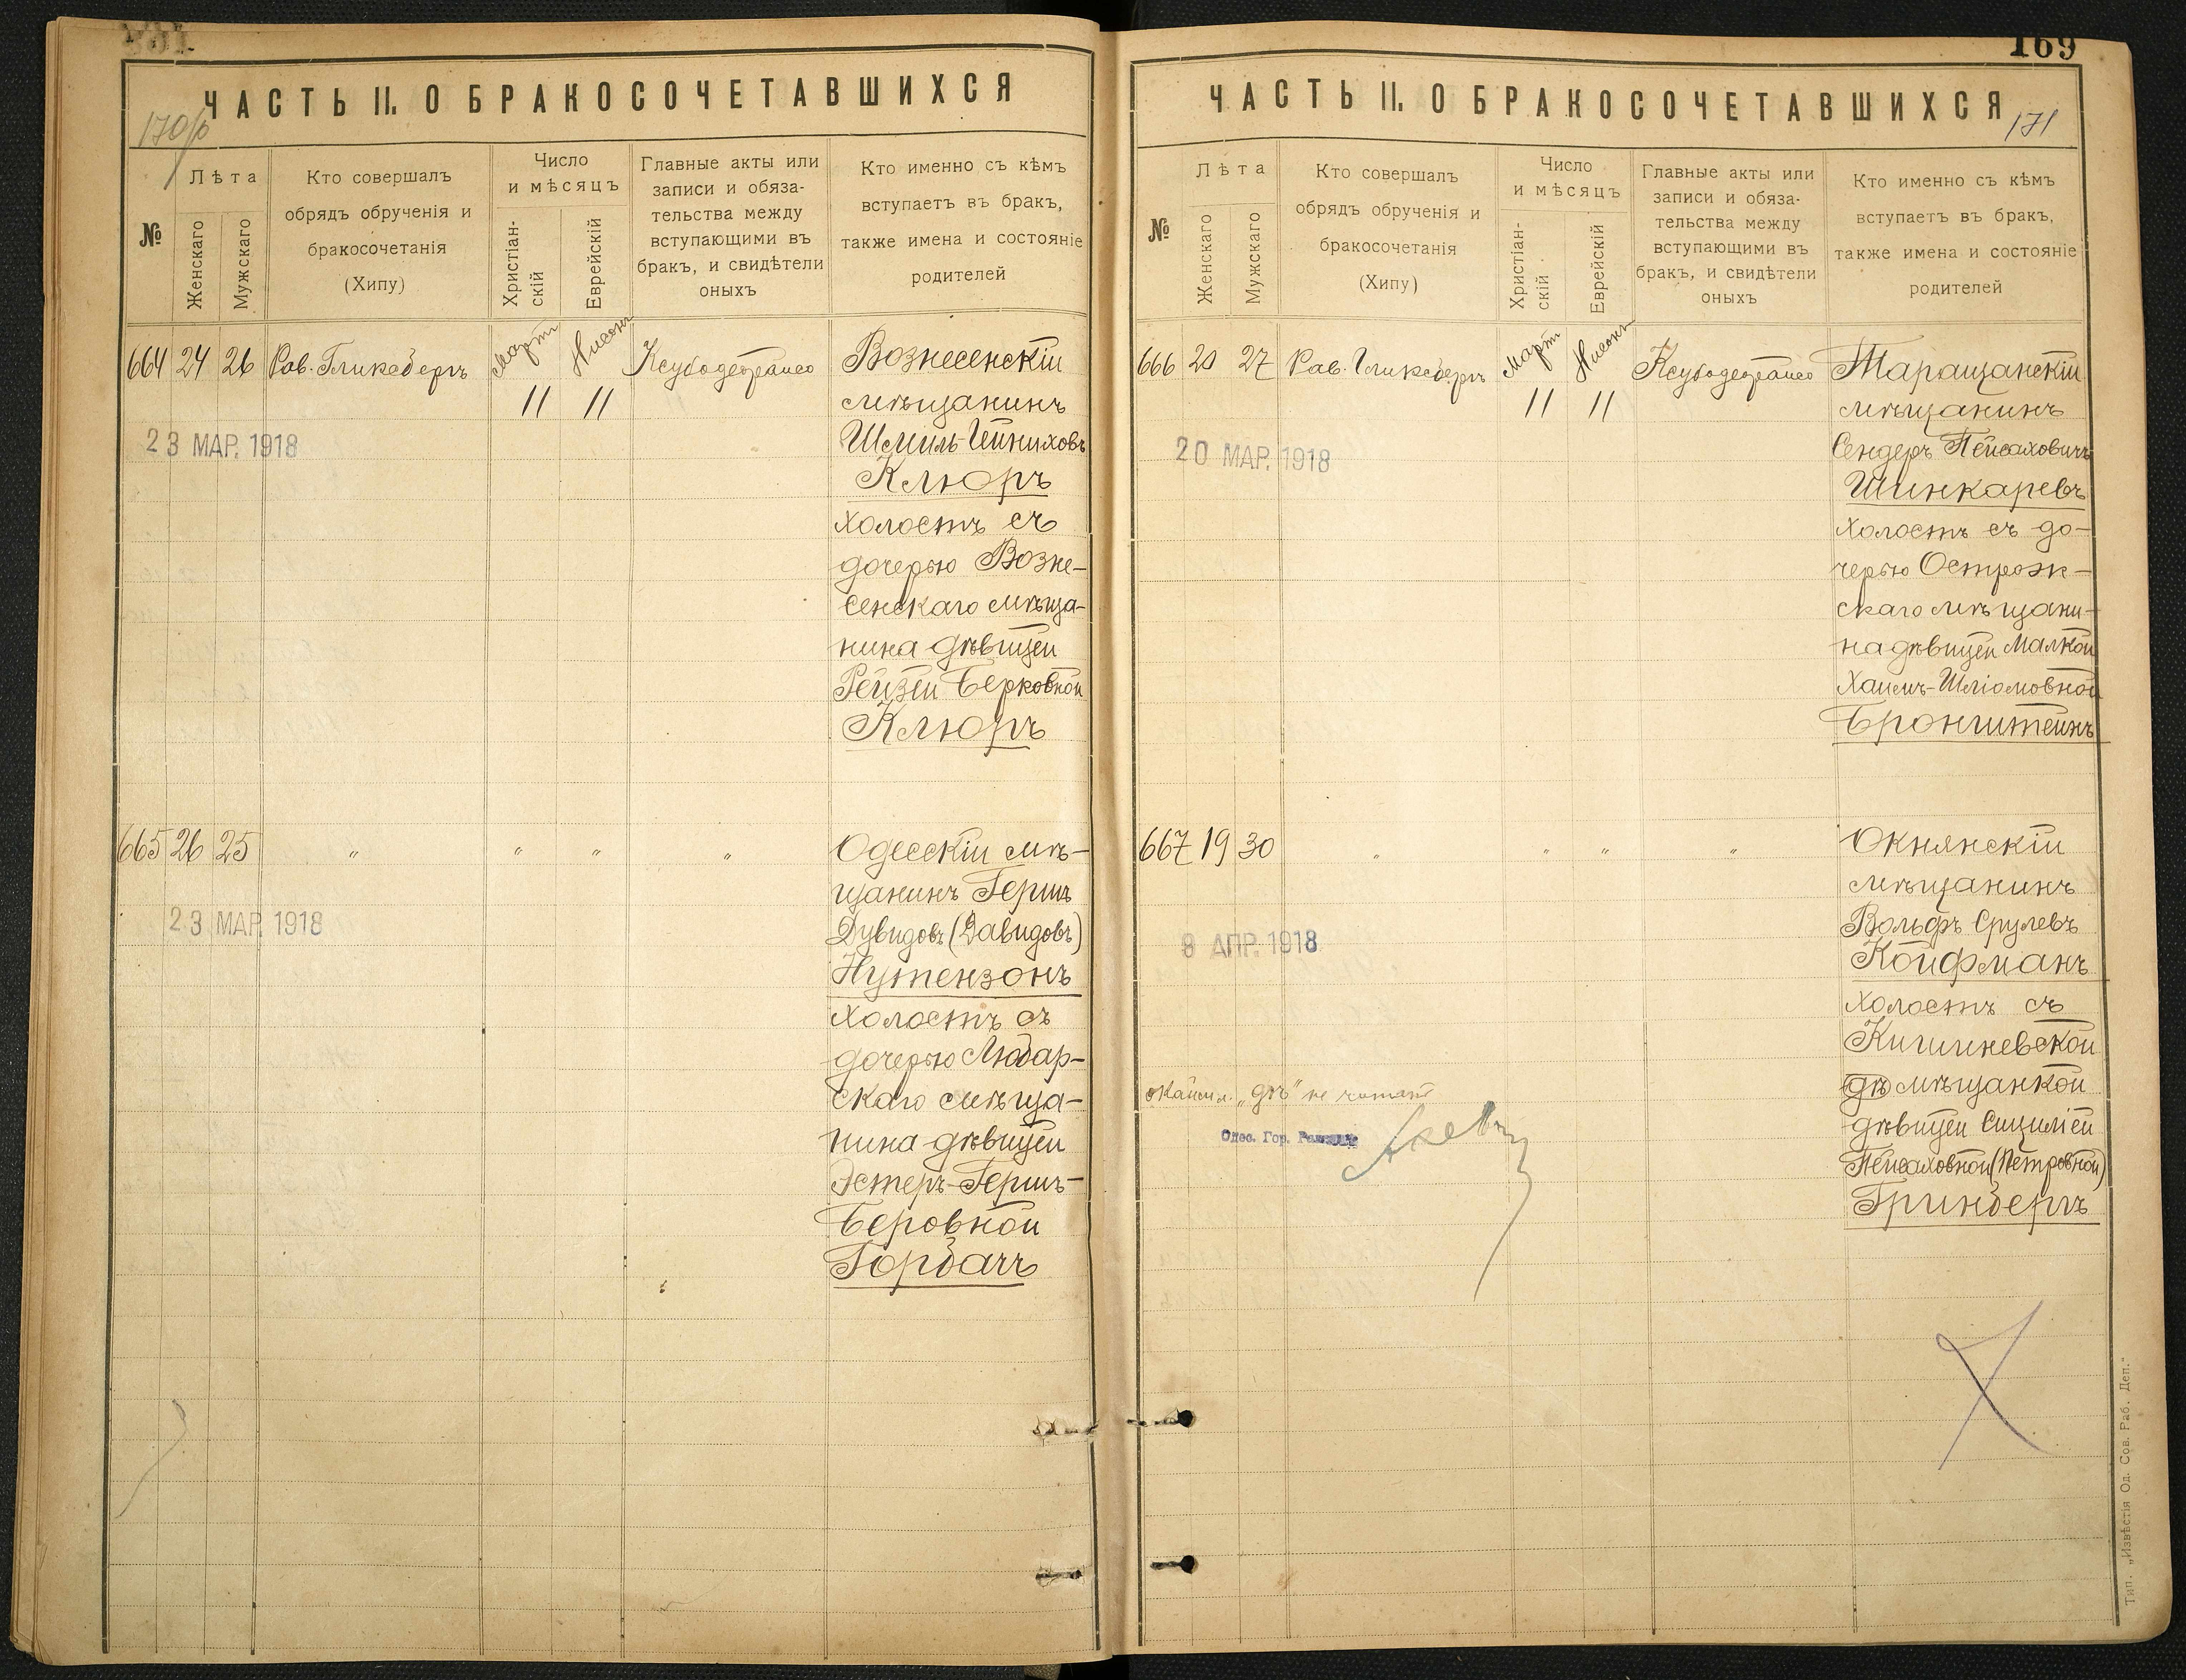 ЧАСТЬ II. О БРАКОСОЧЕТАВШИХСЯ
170/о
№
Лѣта
Женскаго
Мужскаго
Кто совершалъ
обрядъ обрученія и
бракосочетанія
(Хипу)
Число
и мѣсяцъ
Христіан-
скій
Еврейскій
Главные акты или
записи и обяза-
тельства между
вступающими въ
бракъ, и свидѣтели
оныхъ
Кто именно съ кѣмъ
вступаетъ въ бракъ,
также имена и состояніе
родителей
664 24 26 Рав. Гликсбергъ Мартъ Нисонъ
11 11
23 МАР. 1918
Вознесенскій
мѣщанинъ
Шміль-Ойниховъ
Клюръ
холостъ съ
дочерью Возне-
сенскаго мѣща-
нина дѣвицей
Рейзей Берковной
Клюръ
665 26 25 " " " "
23 МАР. 1918
Одесскій мѣ-
щанинъ Гершъ
Дувидовъ (Давидовъ)
Нутензонъ
холостъ съ
дочерью Любар-
скаго мѣща-
нина дѣвицей
Эстеръ-Гершъ-
Беровной
Горбачъ
169
ЧАСТЬ II. О БРАКОСОЧЕТАВШИХСЯ
171
№
Лѣта
Женскаго
Мужскаго
Кто совершалъ
обрядъ обрученія и
бракосочетанія
(Хипу)
Число
и мѣсяцъ
Христіан-
скій
Еврейскій
Главные акты или
записи и обяза-
тельства между
вступающими въ
бракъ, и свидѣтели
оныхъ
Кто именно съ кѣмъ
вступаетъ въ бракъ,
также имена и состояніе
родителей
666 20 27 Рав. Гликсбергъ Мартъ Нисонъ
11 11
20 МАР. 1918
Таращанскій
мѣщанинъ
Сендеръ Пейсаховичъ
Шинкаревъ
холостъ съ до-
черью Острож-
скаго мѣщани-
на дѣвицей Малкой
Хаимъ-Шліомовной
Бронштейнъ
667 19 30 " " " "
8 АПР. 1918
Окнянскій
мѣщанинъ
Вольфъ Срулевъ
Койфманъ
холостъ съ
Кишиневской
дѣ мѣщанкой
дѣвицей Сицилiей
Пейсаховной (Петровной)
Гринбергъ
"дѣ" не читать
Одес. Гор.
Тип. „Извѣстія Од. Сов. Раб. Деп."